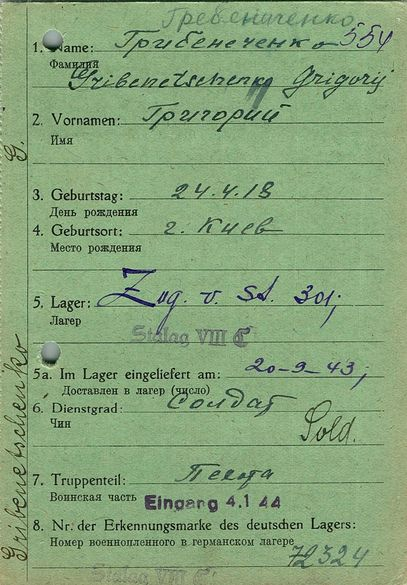 Гребениченко
1. Name: Грибенеченко 554
Фамилия
Gribenetschenko Grigorij
2. Vornamen: Григорий
Имя
3. Geburtstag: 24.4.18
День рождения
4. Geburtsort: г. Киев
Место рождения
5. Lager: Zug. v. St. 301;
Лагер
Stalag VIII C
5a. Im Lager eingeliefert am: 20-9-43;
Доставлен в лагер (число)
6. Dienstgrad: Солдат
Чин
Sold.
7. Truppenteil: Пехота
Воинская часть Eingang 4.1.44
8. Nr. der Erkennungsmarke des deutschen Lagers:
Номер военнопленного в германском лагере
72324
Stalag VIII C
Gribenetschenko G.